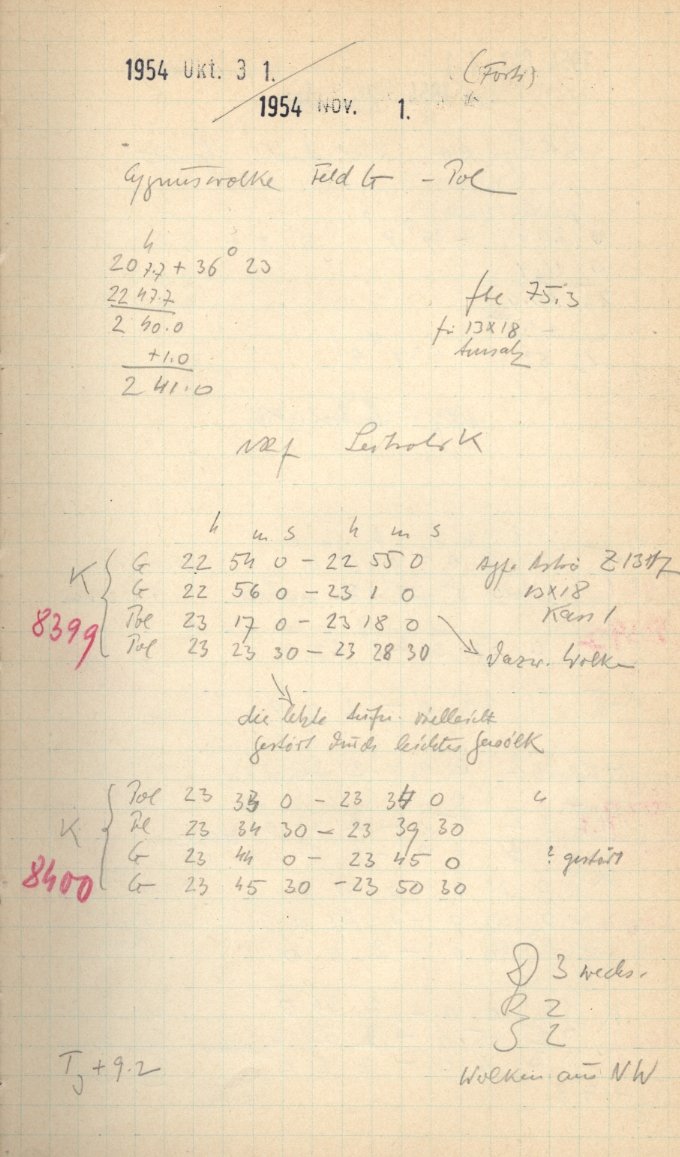 1954 Okt. 3 1. (Forts)
1954 NOV. 1.
Cygnuswolke Feld G – Pol
h
20 7.7 + 36° 23
22 47.7
2 40.0
+1.0
2 41.0
fbe 75.3
für 13x18
Ansatz
K
h m s h m s
K G 22 54 0 – 22 55 0
G 22 56 0 – 23 1 0 13x18
Pol 23 17 0 – 23 18 0 Kass 1
8399
Pol 23 23 30 – 23 28 30 dazw. Wolken
die letzte Aufn. vielleicht
gestört durch leichtes Gewölk
Pol 23 33 0 – 23 34 0 "
K Pol 23 34 30 – 23 39 30
G 23 44 0 – 23 45 0 ? gestört
8400 G 23 45 30 – 23 50 30
3 wechs.
R 2
S 2
T + 9.2 Wolken aus NW